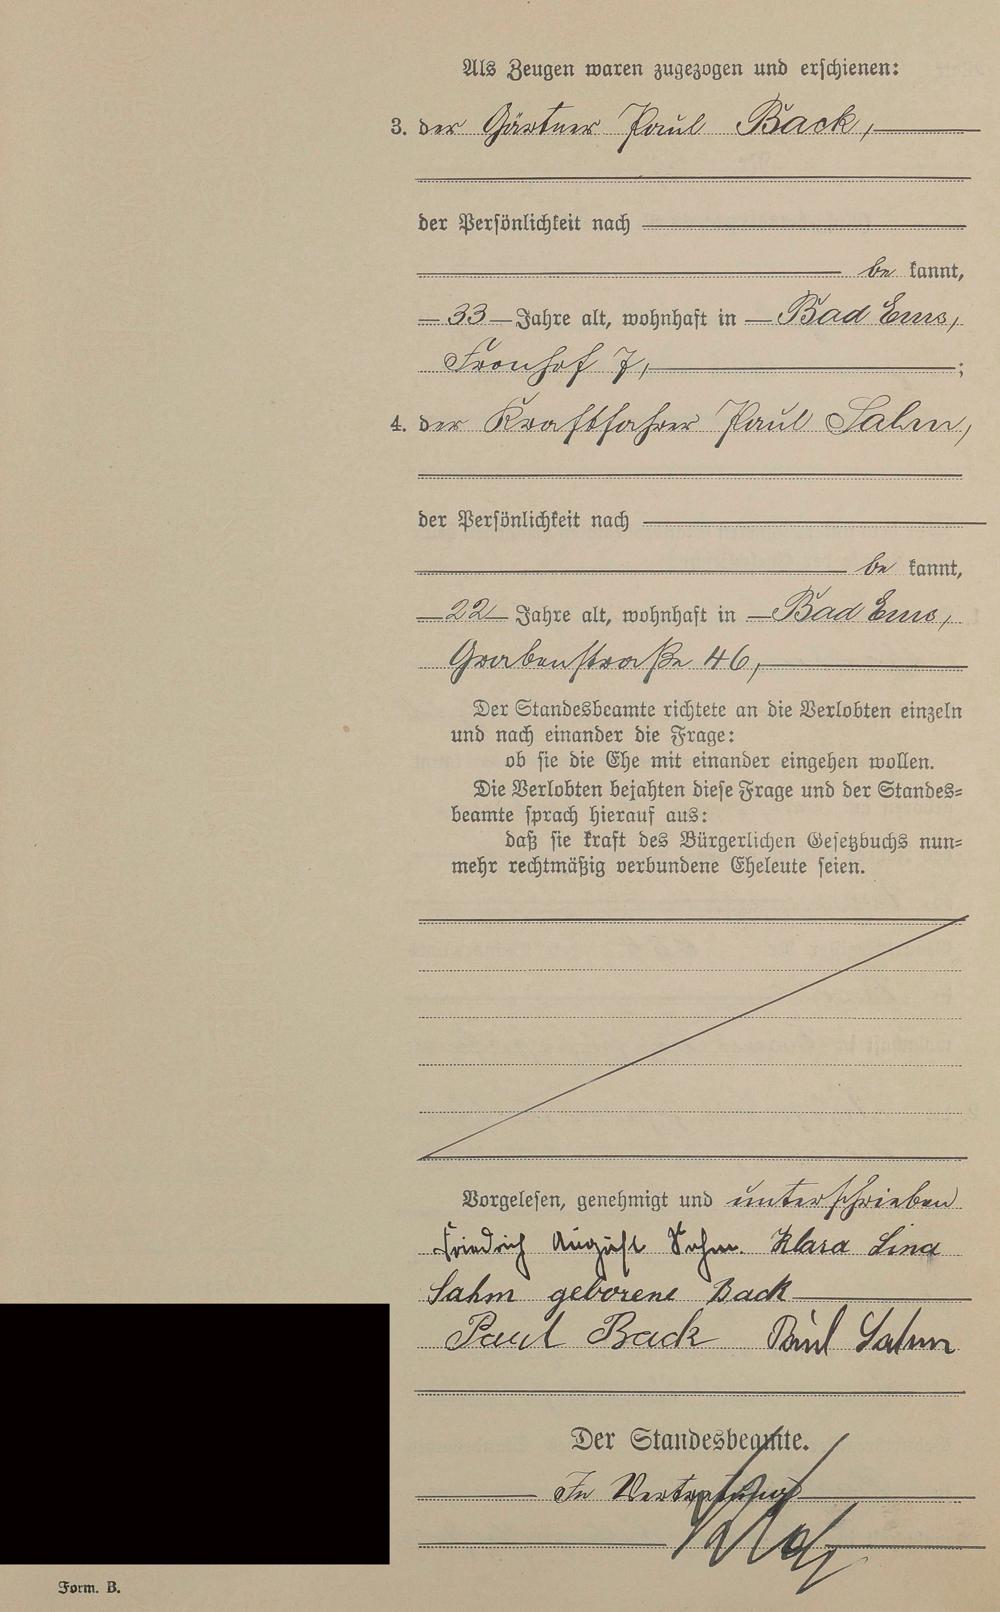 Als Zeugen waren zugezogen und erschienen:
3. der Gärtner Paul Back,
der Persönlichkeit nach
be kannt,
33 Jahre alt, wohnhaft in Bad Ems,
Fronhof 7, ;
4. der Kraftfahrer Paul Sahm,
der Persönlichkeit nach
be kannt,
22 Jahre alt, wohnhaft in Bad Ems,
Grabenstraße 46,
Der Standesbeamte richtete an die Verlobten einzeln
und nach einander die Frage:
ob sie die Ehe mit einander eingehen wollen.
Die Verlobten bejahten diese Frage und der Standes-
beamte sprach hierauf aus:
daß sie kraft des Bürgerlichen Gesetzbuchs nun-
mehr rechtmäßig verbundene Eheleute seien.
Vorgelesen, genehmigt und unterschrieben
Friedrich August Sahm. Klara Lina
Sahm geborene Back
Paul Back Paul Sahm
Der Standesbeamte.
In Vertretung
Form. B.